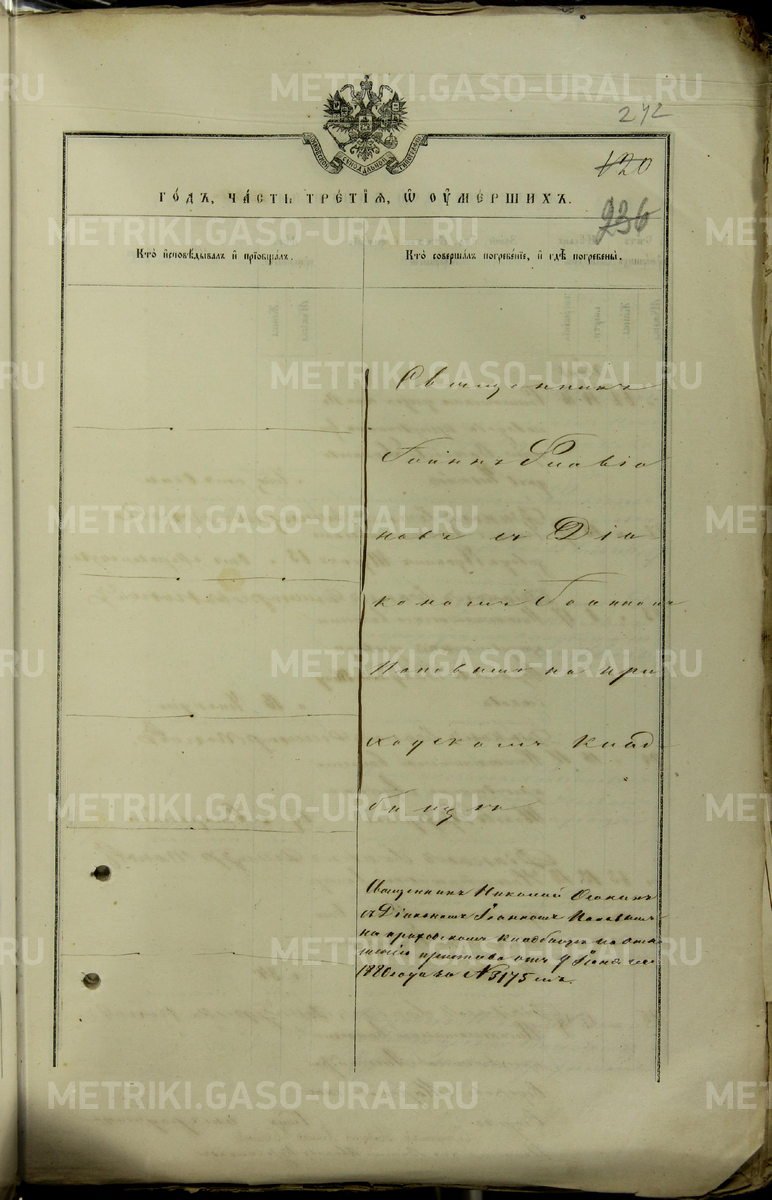 METRIKI.GASO-URAL.RU
242
120
236
СѴНОДАЛЬНОЙ ТИПОГРАФІИ
ГО́ДЪ, ЧА́СТЬ ТРЕ́ТІѦ, Ѡ ОУМЕ́РШИХЪ.
Кто̀ и҆сповѣ́дывалъ и҆ пріѡбща́лъ.
Кто̀ соверша́лъ погребе́ніе, и҆ гдѣ̀ погребены̀.
Священникъ
Іоаннъ Флавіа
новъ съ Діа
кономъ Іоанномъ
Поповымъ на при
ходскомъ клад
бищѣ
Священникъ Николай
съ Діакономъ Іоанномъ Поповымъ
на приходскомъ кладбищѣ по отно
шенію пристава отъ 9
1880 года за № 3175 мъ.